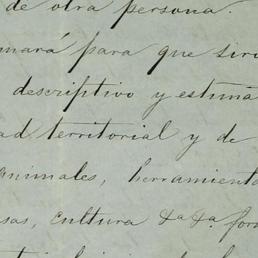 de otra persona.
mará para que sirv
descriptivo y estima
ad territorial y de
animales, herramienta
sas, cultura &a &a. for